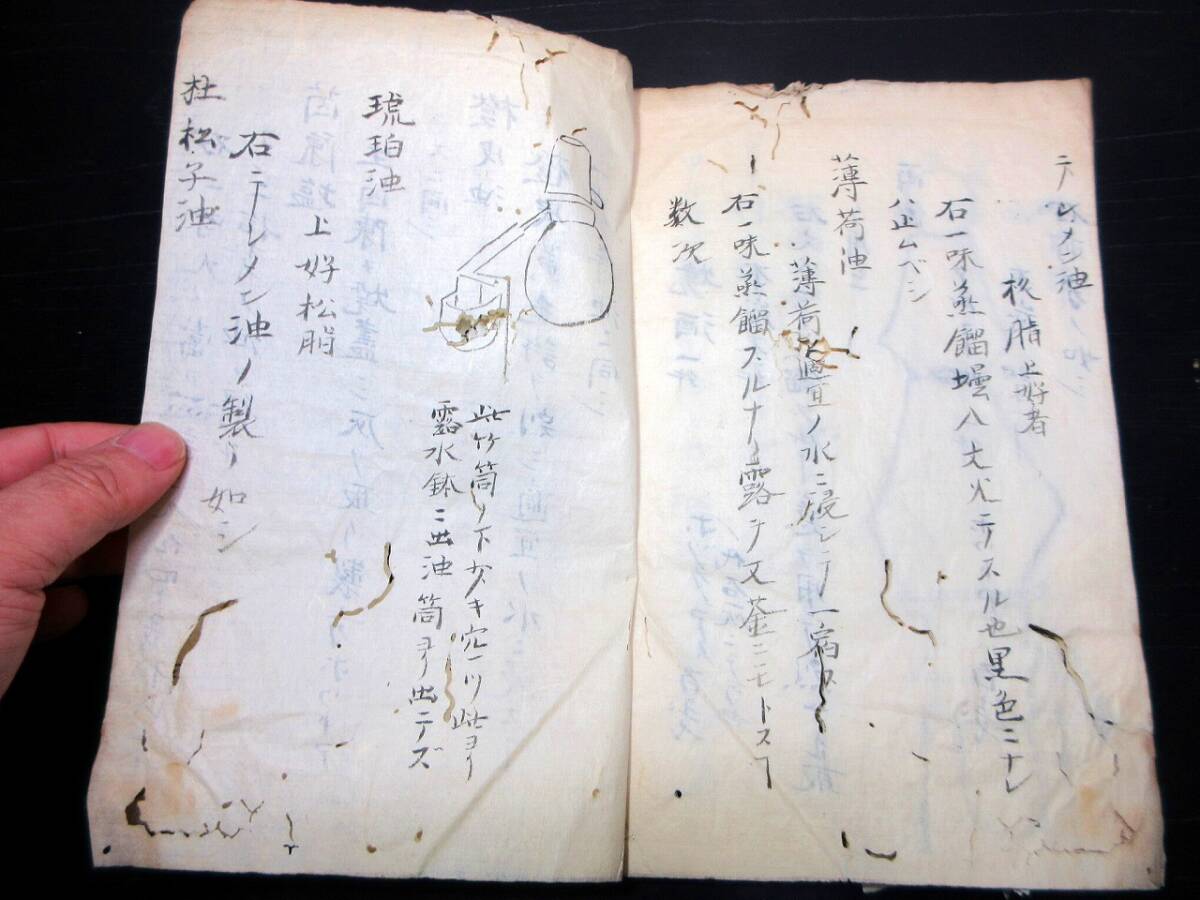 テレメン油
松脂上好者
右一味蒸餾壜八丈火ニテスル也黒色ニナレ
ハ止ムベシ
薄荷油
薄荷適宜ノ水ニ浸シテ一宿
右一味蒸餾スルナリ露ヲ又釜ニモトスヿ
数次
此竹筒ノ下方キ穴一ツ此ヨリ
露水鉢ニ出油筒ヨリ出テズ
琥珀油
上好松脂
右テレメン油ノ製ノ如シ
杜松子油